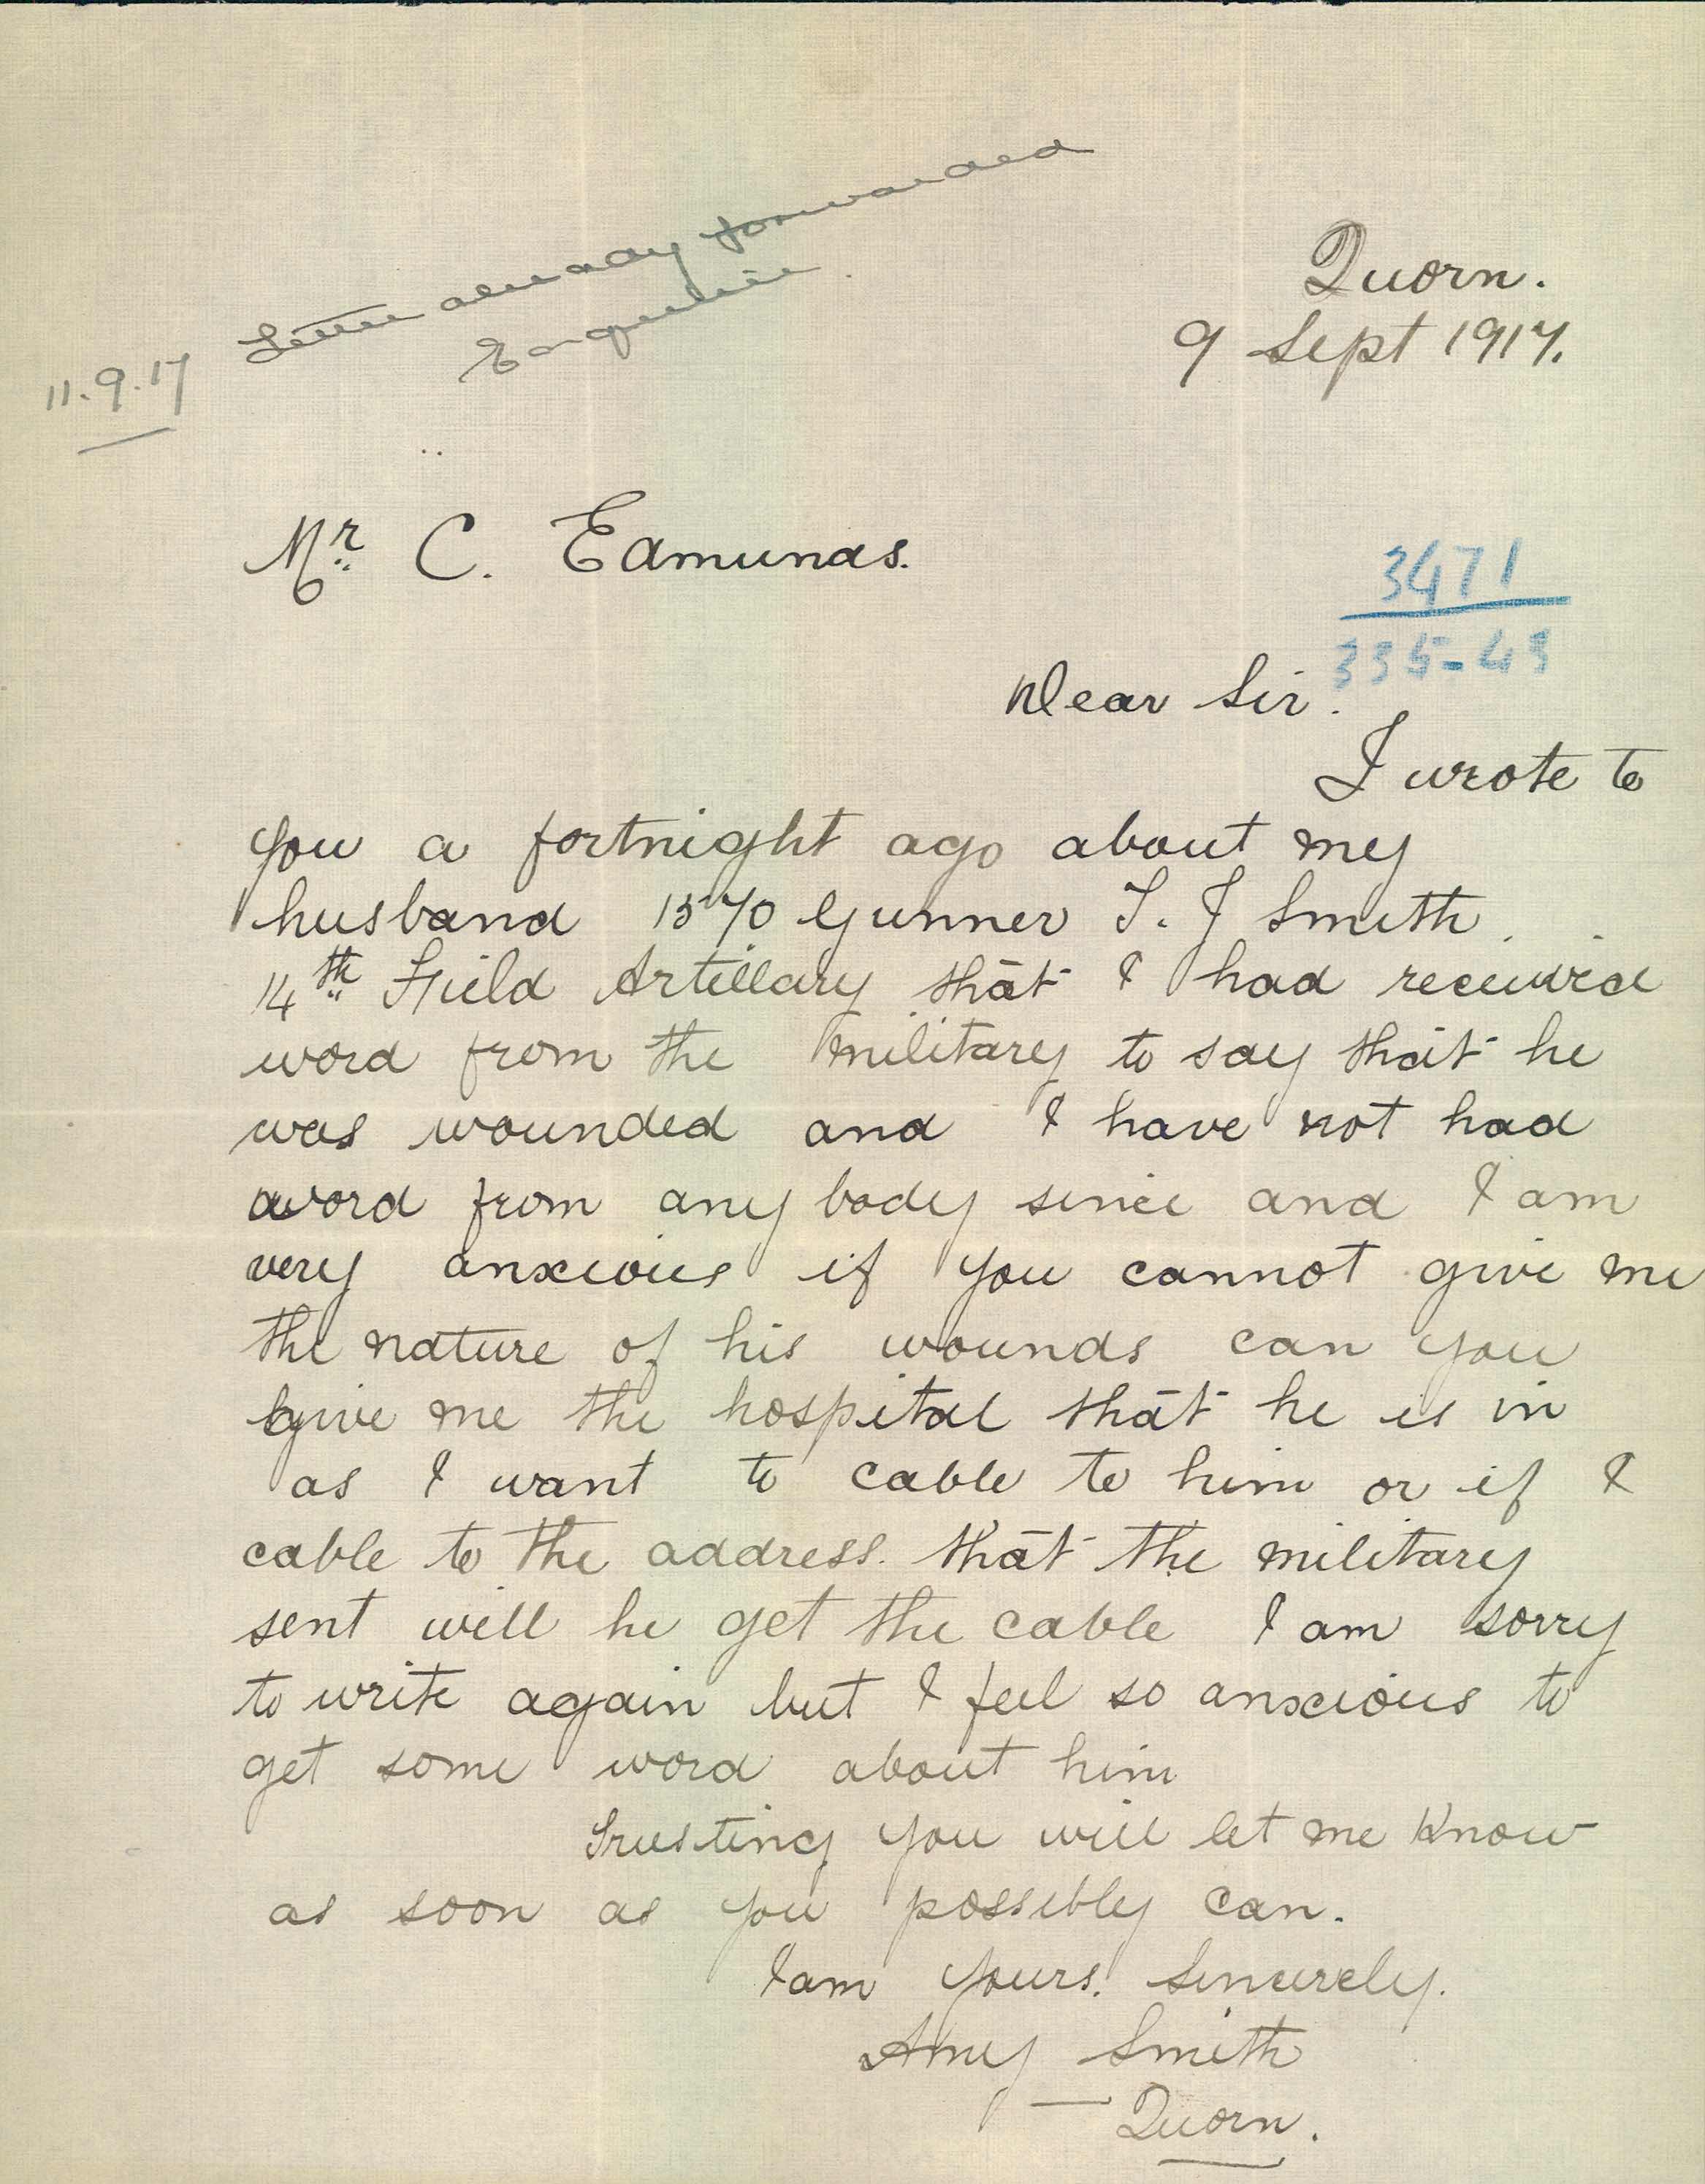 Letter already forwarded
Enquiries.
11.9.17
Quorn.
9 Sept 1917.
Mr. C. Edmunds.
3471
335-43
Dear Sir.
I wrote to
you a fortnight ago about my
husband 1570 Gunner T. J Smith.
14th Field Artillary that I had received
word from the military to say that he
was wounded and I have not had
a word from any body since and I am
very anxious if you cannot give me
the nature of his wounds can you
give me the hospital that he is in
as I want to cable to him or if I
cable to the address. that the military
sent will he get the cable I am sorry
to write again but I feel so anxious to
get some word about him
Trusting you will let me know
as soon as you possibly can.
I am yours. Sincerely.
Amy Smith
— Quorn.